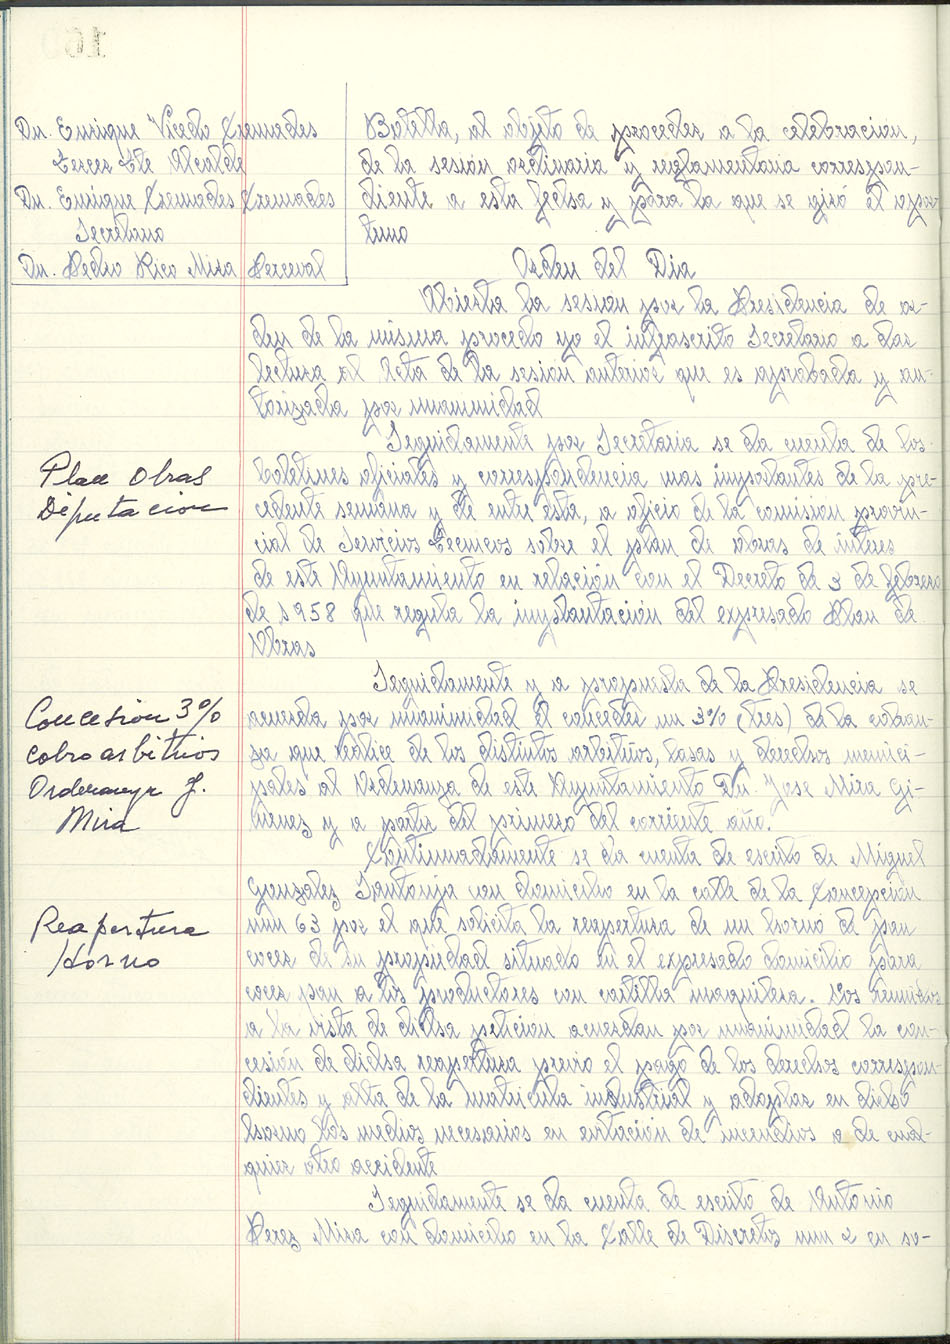 Dn. Enrique Vicedo Cremades
Tercer Tte Alcalde
Dn. Enrique Cremades Cremades
Secretario
Dn. Pedro Rico Mira Perceval
Botella, al objeto de proceder a la celebración,
de la sesión ordinaria y reglamentaria correspon-
diente a esta fecha y para la que se giró el opor-
tuno
Orden del Dia
Abierta la sesion por la Presidencia de or-
den de la misma procedo yo el infrascrito Secretario a dar
lectura al Acta de la sesion anterior que es aprobada y au-
torizada por unanimidad
Plan Obras
Diputacion
Seguidamente por Secretaria se da cuenta de los
boletines oficiales y correspondencia mas importantes de la pre-
cedente semana y de entre esta, a oficio de la comision provin-
cial de Servicios Tecnicos sobre el plan de obras de interes
de este Ayuntamiento en relación con el Decreto de 3 de febrero
de 1958 que regula la implantación del expresado Plan de
Obras
Concesion 3%
cobro arbitrios
Ordenanza J.
Mira
Seguidamente y a propuesta de la Presidencia se
acuerda por unanimidad el conceder un 3% (tres) de la cobran-
za que realice de los distintos arbitrios, tasas y derechos munici-
pales al Ordenanza de este Ayuntamiento Dn. Jose Mira Gi-
menez y a partir del primero del corriente año.
Reapertura
Horno
Continuadamente se da cuenta de escrito de Miguel
Gonzalez Santonja con domicilio en la calle de la Concepción
num 63 por el que solicita la reapertura de un horno de pan
cocer de su propiedad situado en el expresado domicilio para
cocer pan a los productores con cartilla maquilera. Los reunidos
a la vista de dicha peticion acuerdan por unanimidad la con-
cesión de dicha reapertura previo el pago de los derechos correspon-
dientes y alta de la matricula industrial y adoptar en dicho
horno los medios necesarios en evitación de incendios o de cual-
quier otro accidente
Seguidamente se da cuenta de escrito de Antonio
Perez Mira con domicilio en la Calle de Discretos num 2 en so-